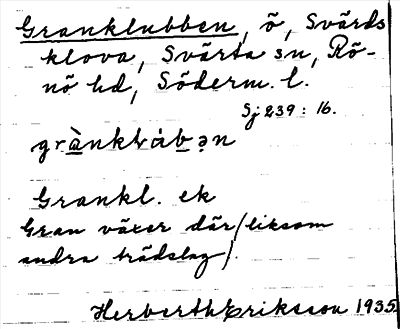 Granklubben, ö, Svärds
klova, Svärta sn, Rö-
nö hd, Söderm. l.
Sj 239 : 16.
Grankl. ek
Gran växer där/liksom
andra trädslag/.
Herberth Eriksson 1935